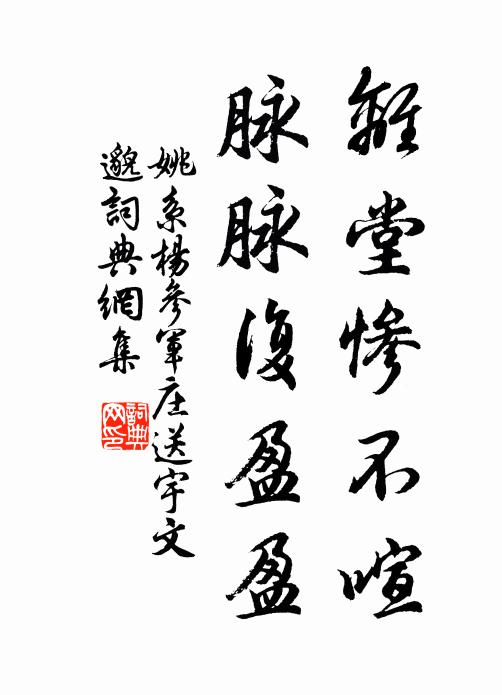 離堂慘不喧
脉脉復盈盈
姚系楊參軍庄送宇文
邈詞典網集
詞典网印